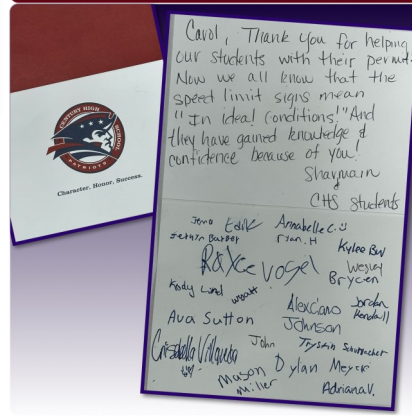 CENTURY HIGH SCHOOL
PATRIOTS
Character. Honor. Success.
Carol, Thank you for helping
our students with their permit.
Now we all know that the
speed limit signs mean
"In Ideal Conditions!" And
they have gained knowledge &
confidence because of you!
Shaymain
CHS Students
Jena Eddie Annabelle C.
Barber Rian. H
Kylee
Royce Vogel Wesley
Brycen
Kody Lund Wyatt
Alexciano Jordan
Kendall
Ava Sutton Johnson
John Trystin Schumacher
Crisabella Villanueva
Dylan Meyer
Mason
Miller Adriana V.